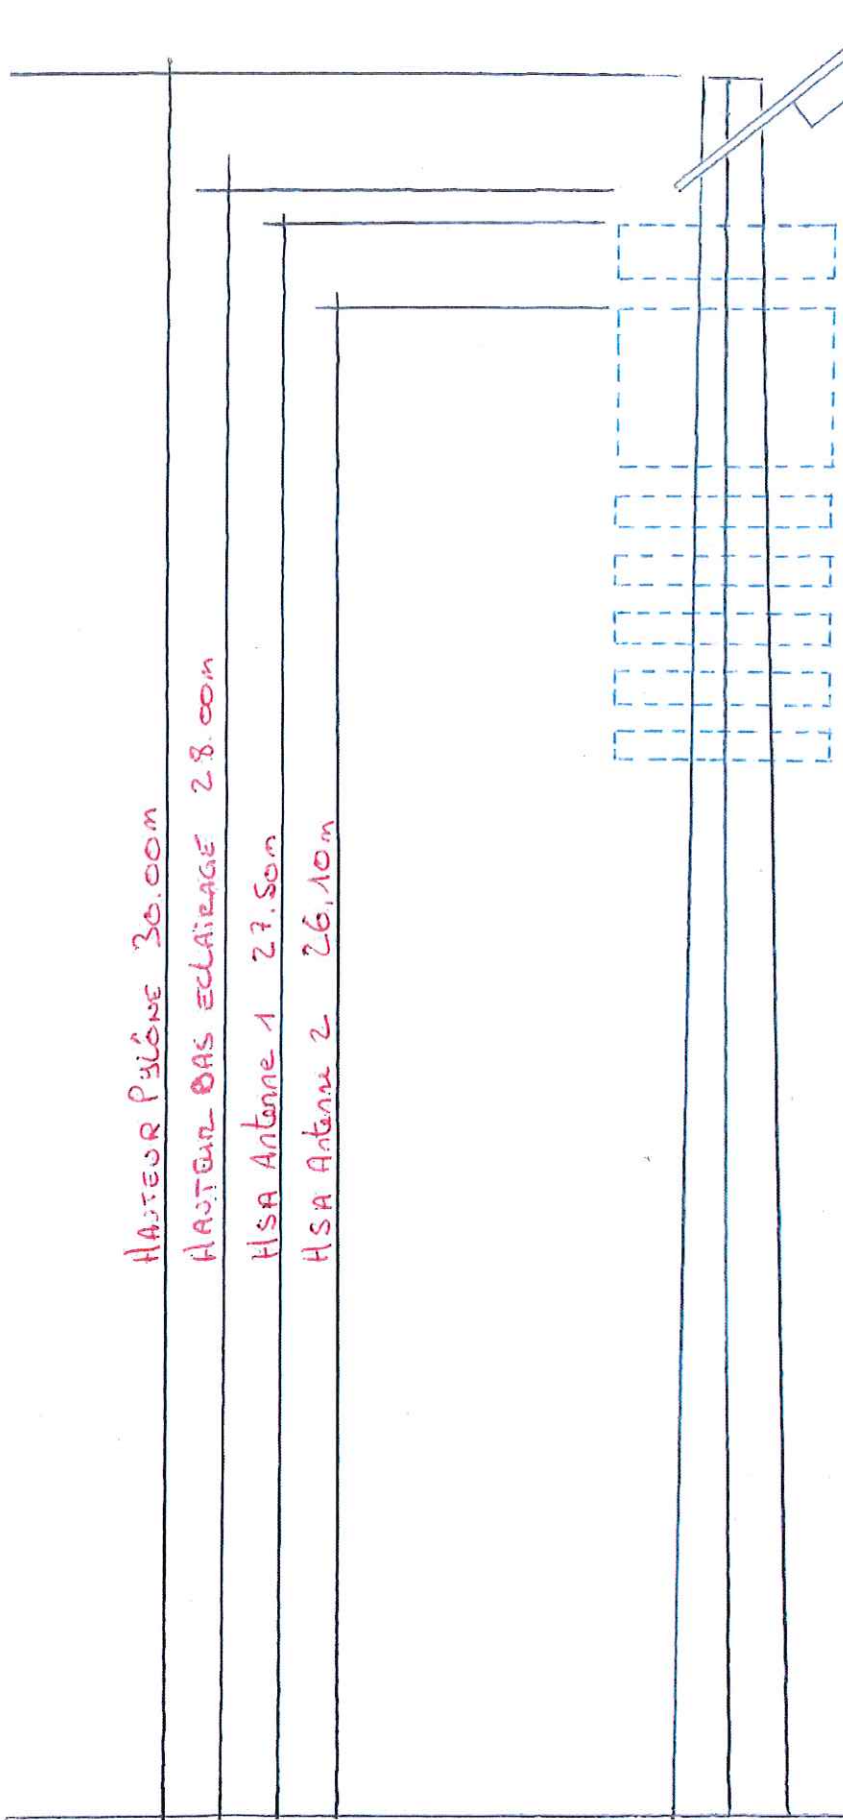 HAUTEUR PYLÔNE 30.00m
HAUTEUR BAS ECLAIRAGE 28.00m
HSA Antenne 1 27.50m
HSA Antenne 2 26,10m